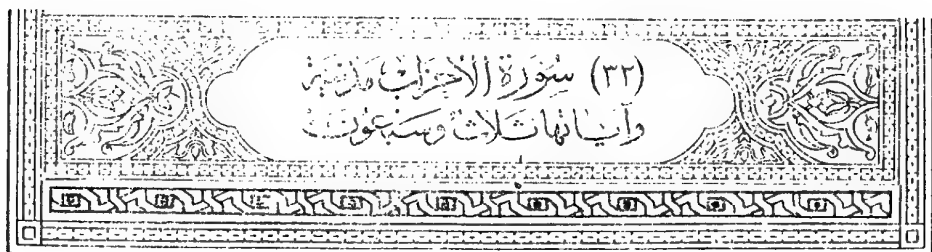 (٣٢) سُورَة الأحزاب مَدنية
وآياتها ثلاث وسبعون